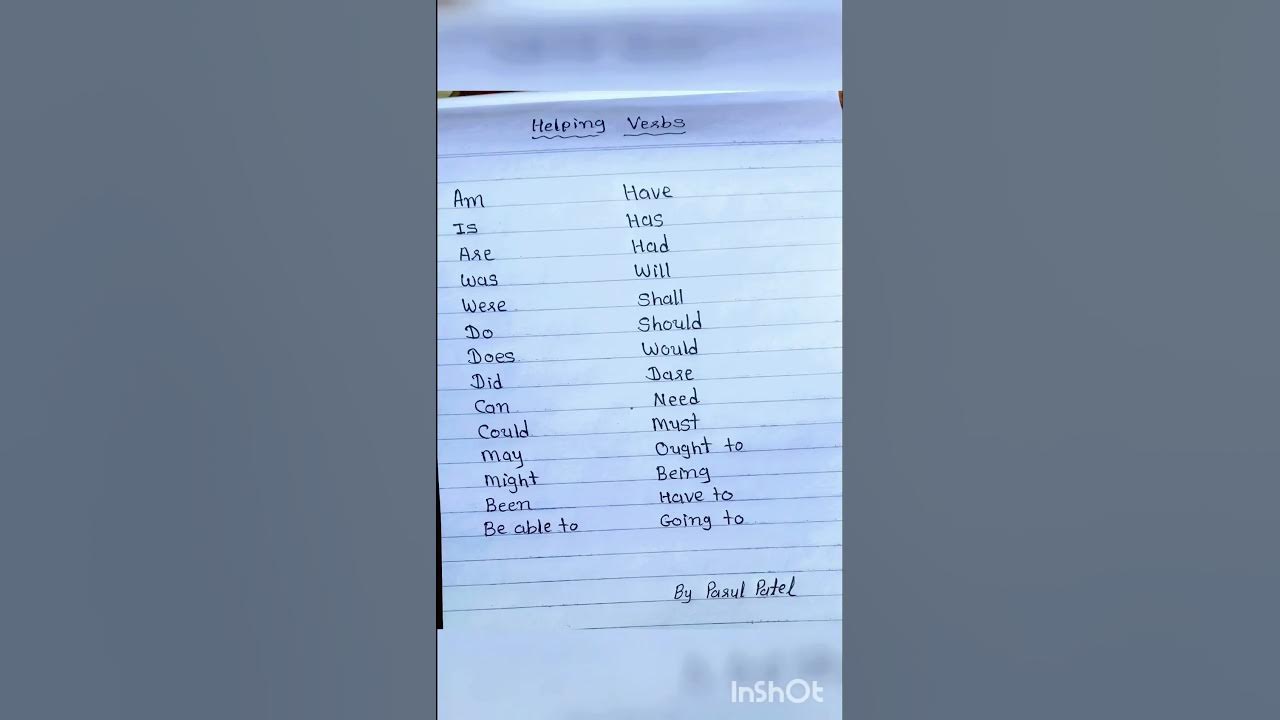 Helping Verbs
Am
Is
Are
Was
Were
Do
Does
Did
Can
Could
May
Might
Been
Be able to
Have
Has
Had
Will
Shall
Should
Would
Dare
Need
Must
Ought to
Being
Have to
Going to
By Parul Patel
InShOt